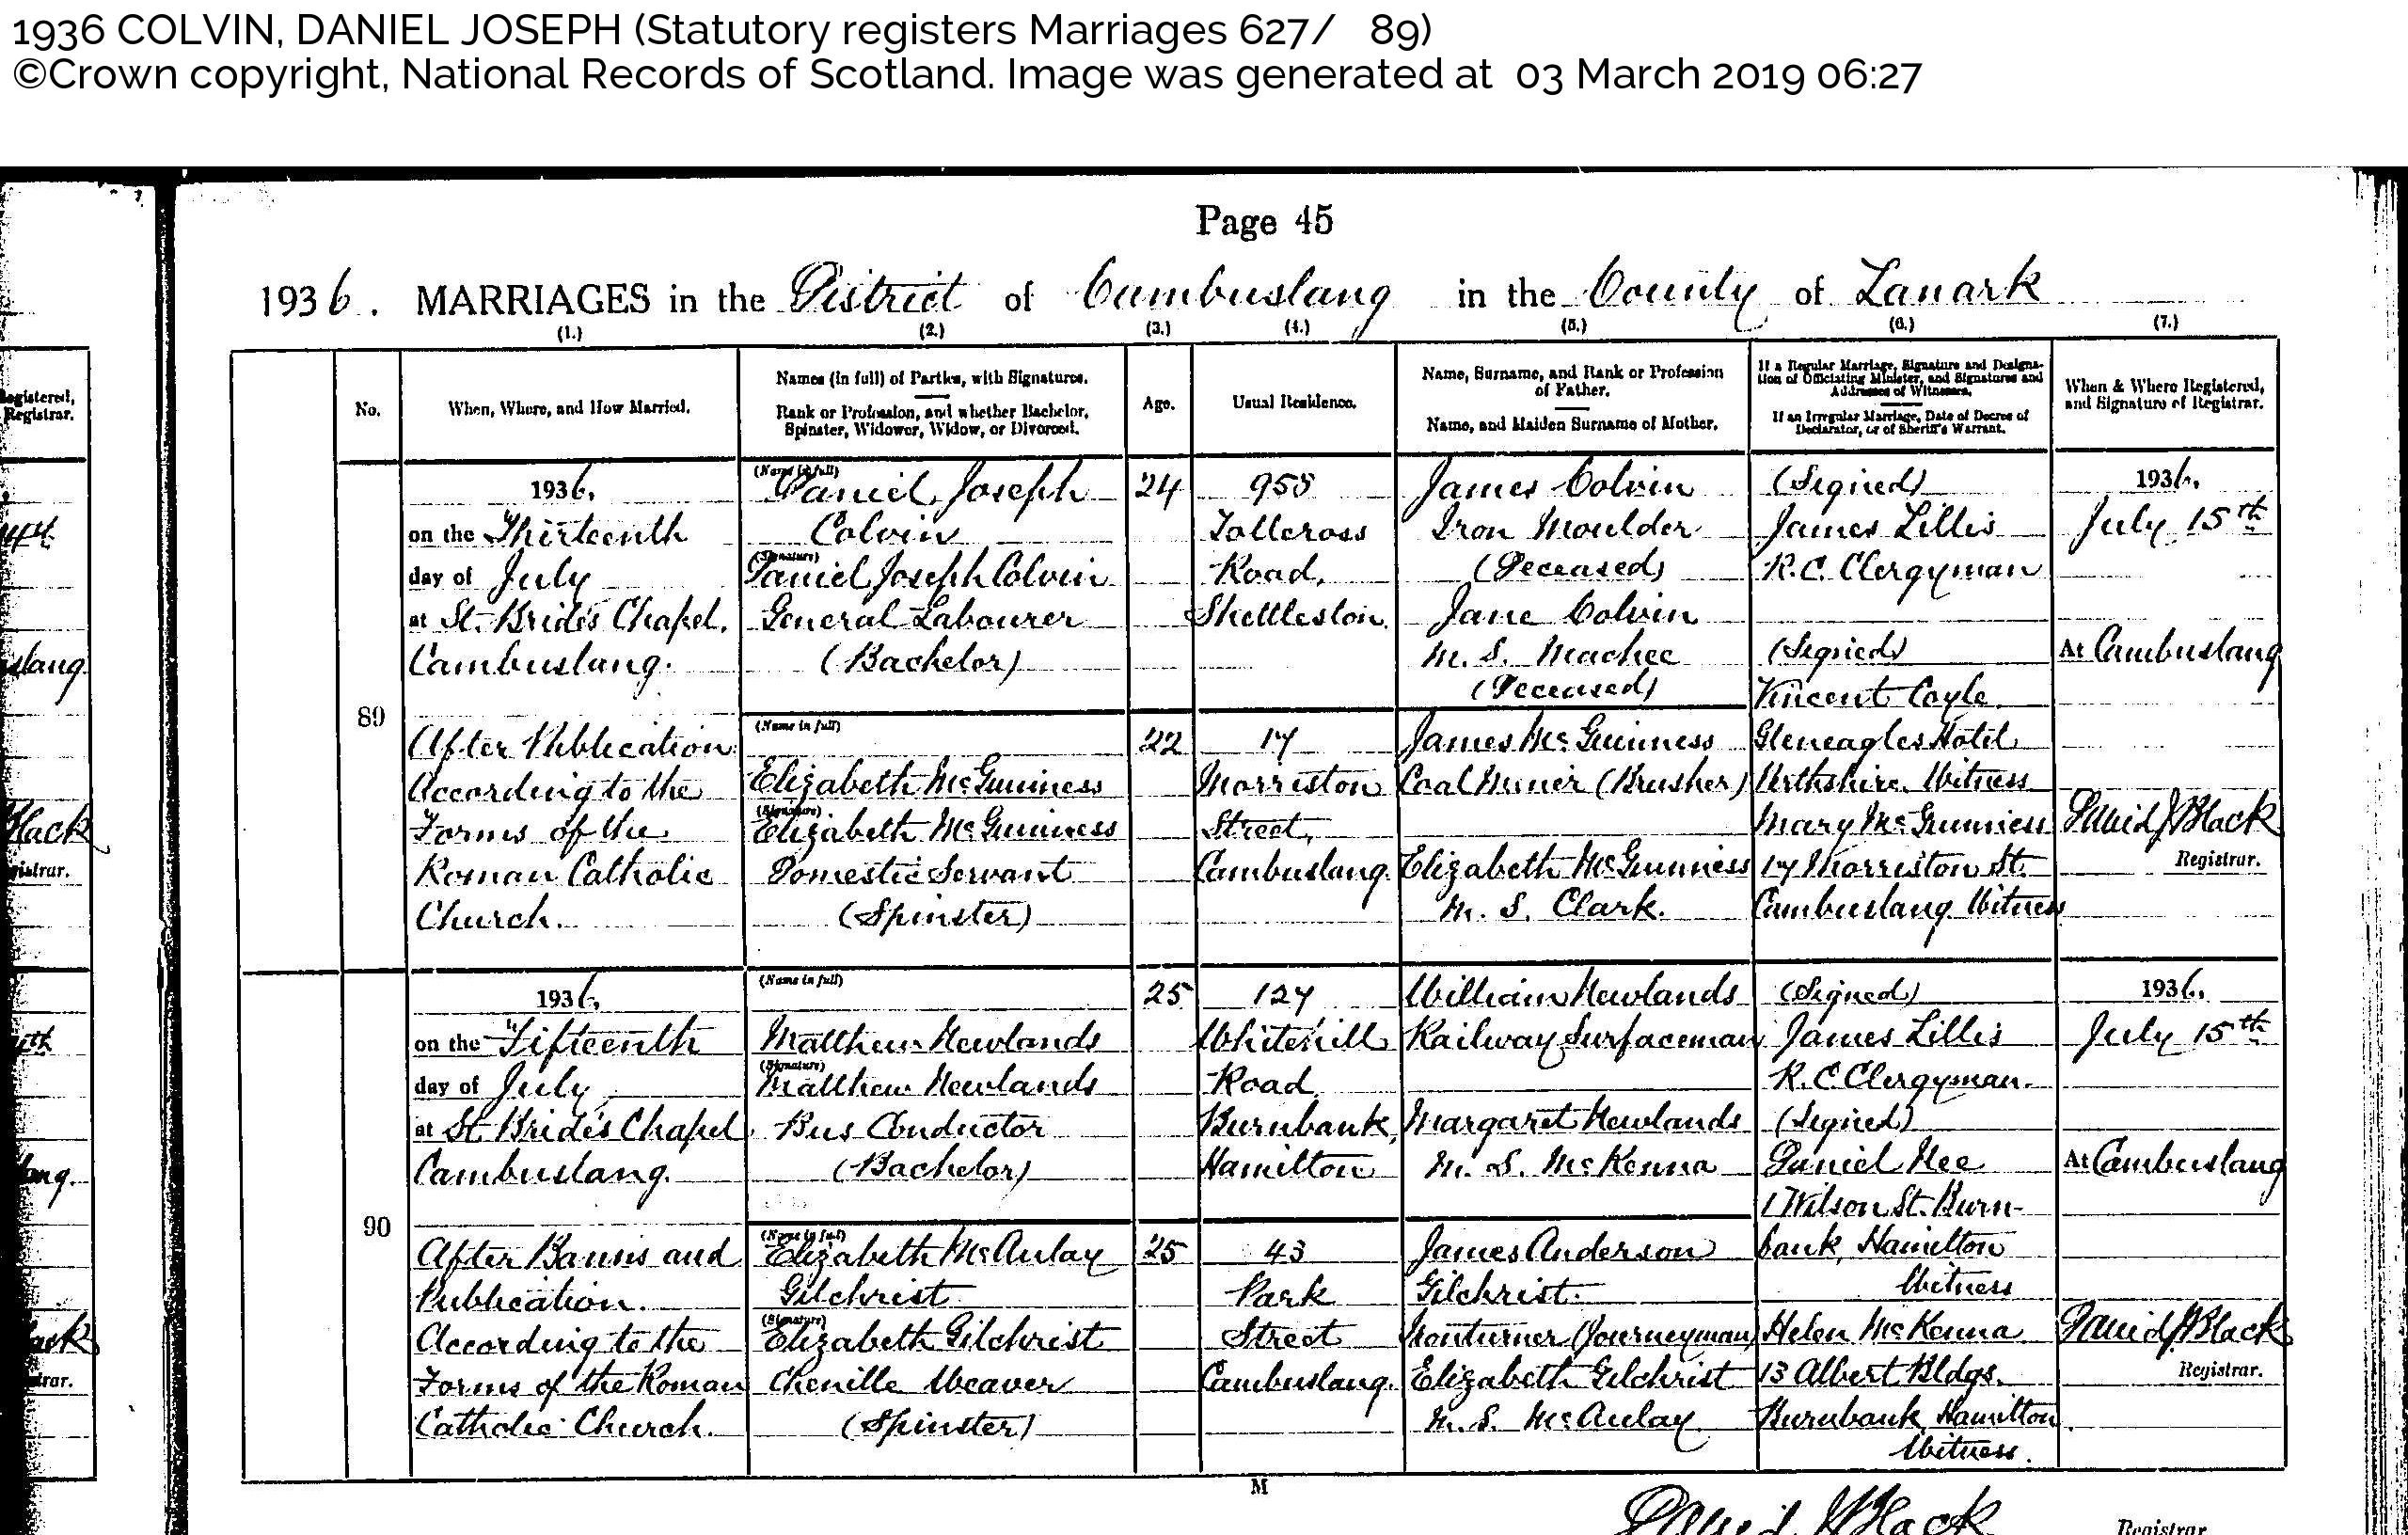 1936 COLVIN, DANIEL JOSEPH (Statutory registers Marriages 627/ 89)
©Crown copyright, National Records of Scotland. Image was generated at 03 March 2019 06:27
Page 45
1936. MARRIAGES in the District of Cambuslang in the County of Lanark
(1.) (2.) (3.) (4.) (5.) (6.) (7.)
No.
When, Where, and How Married.
Names (in full) of Parties, with Signatures.
Rank or Profession, and whether Bachelor,
Spinster, Widower, Widow, or Divorced.
Age.
Usual Residence.
Name, Surname, and Rank or Profession
of Father.
Name, and Maiden Surname of Mother.
If a Regular Marriage, Signature and Designa-
tion of Officiating Minister, and Signatures and
Addresses of Witnesses.
If an Irregular Marriage, Date of Decree of
Declarator, or of Sheriff's Warrant.
When & Where Registered,
and Signature of Registrar.
89
1936,
on the Thirteenth
day of July
at St. Bride's Chapel,
Cambuslang.
After Publication
According to the
Forms of the
Roman Catholic
Church.
(Name in full)
Daniel Joseph
Colvin
(Signature)
Daniel Joseph Colvin
General Labourer
(Bachelor)
(Name in full)
Elizabeth McGuinness
(Signature)
Elizabeth McGuinness
Domestic Servant
(Spinster)
24
22
958
Tollcross
Road,
Shettleston.
17
Morriston
Street,
Cambuslang.
James Colvin
Iron Moulder
(Deceased)
Jane Colvin
M. S.
(Deceased)
James McGuinness
Coal Miner (Brusher)
Elizabeth McGuinness
M. S. Clark.
(Signed)
James Lillis
R.C. Clergyman
(Signed)
Vincent Coyle
Gleneagles Hotel
Perthshire. Witness
Mary McGuinness
17 Morriston St.
Cambuslang Witness
1936,
July 15th
At Cambuslang
David J Black
Registrar.
90
1936,
on the Fifteenth
day of July
at St. Bride's Chapel
Cambuslang.
After Banns and
Publication.
According to the
Forms of the Roman
Catholic Church.
(Name in full)
Matthew Newlands
(Signature)
Matthew Newlands
Bus Conductor
(Bachelor)
(Name in full)
Elizabeth McAulay
Gilchrist
(Signature)
Elizabeth Gilchrist
Chenille Weaver
(Spinster)
25
25
127
Whitehill
Road
Burnbank,
Hamilton
43
Park
Street
Cambuslang.
William Newlands
Railway Surfaceman
Margaret Newlands
M. S. McKenna
James Anderson
Gilchrist.
Ironturner (Journeyman)
Elizabeth Gilchrist
M. S. McAulay
(Signed)
James Lillis
R.C. Clergyman.
(Signed)
Daniel Nee
1 Wilson St. Burn-
bank, Hamilton
Witness
Helen McKenna
13 Albert Bldgs.
Burnbank Hamilton
Witness.
1936,
July 15th
At Cambuslang
David J Black
Registrar.
M
David J Black
Registrar
egistered,
Registrar.
slang.
Black
gistrar.
ang.
ack
trar.